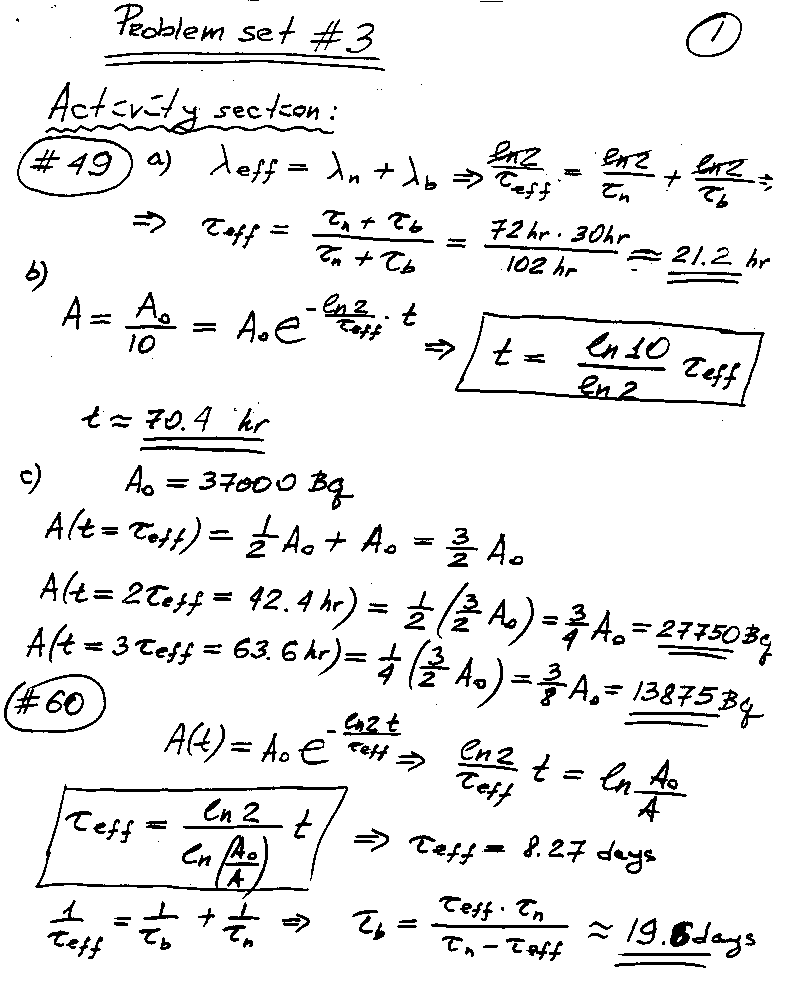 Problem set #3
1
Activity section:
#49 a) λeff = λn + λb ⇒ ln2/τeff = ln2/τn + ln2/τb ⇒
⇒ τeff = (τn + τb)/(τn + τb) = (72 hr · 30 hr)/(102 hr) ≈ 21.2 hr
b)
A = A₀/10 = A₀e^(-(ln2/τeff)·t) ⇒ t = (ln10/ln2) τeff
t ≈ 70.4 hr
c) A₀ = 37000 Bq
A(t = τeff) = 1/2 A₀ + A₀ = 3/2 A₀
A(t = 2τeff = 42.4 hr) = 1/2 (3/2 A₀) = 3/4 A₀ = 27750 Bq
A(t = 3τeff = 63.6 hr) = 1/4 (3/2 A₀) = 3/8 A₀ = 13875 Bq
#60
A(t) = A₀e^(-ln2 t/τeff) ⇒ (ln2/τeff) t = ln A₀/A
τeff = (ln2/ln(A₀/A)) t ⇒ τeff = 8.27 days
1/τeff = 1/τb + 1/τn ⇒ τb = (τeff · τn)/(τn - τeff) ≈ 19.6 days